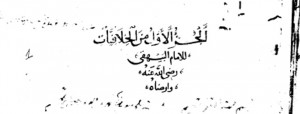 الجزء الأول من الخلافيات
للامام البيهقي
رضي الله عنه
وارضاه